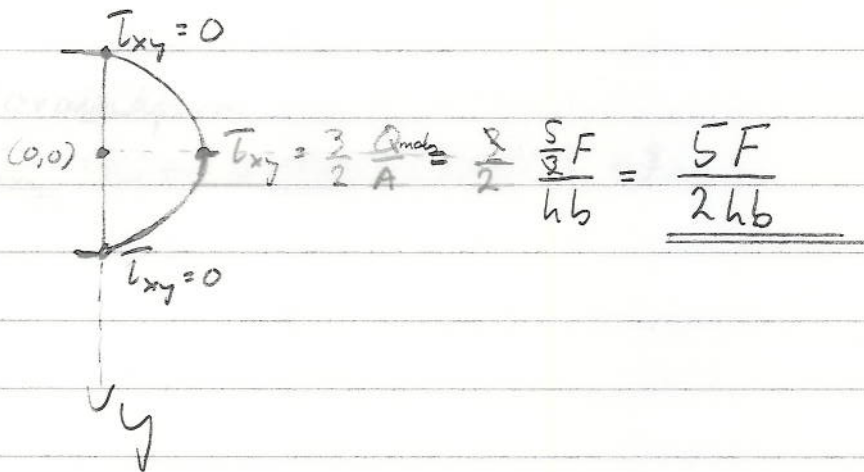 τxy = 0
(0,0) τxy = 3/2 Qmax/A = 3/2 (5/3 F)/(hb) = 5F/(2hb)
τxy = 0
y